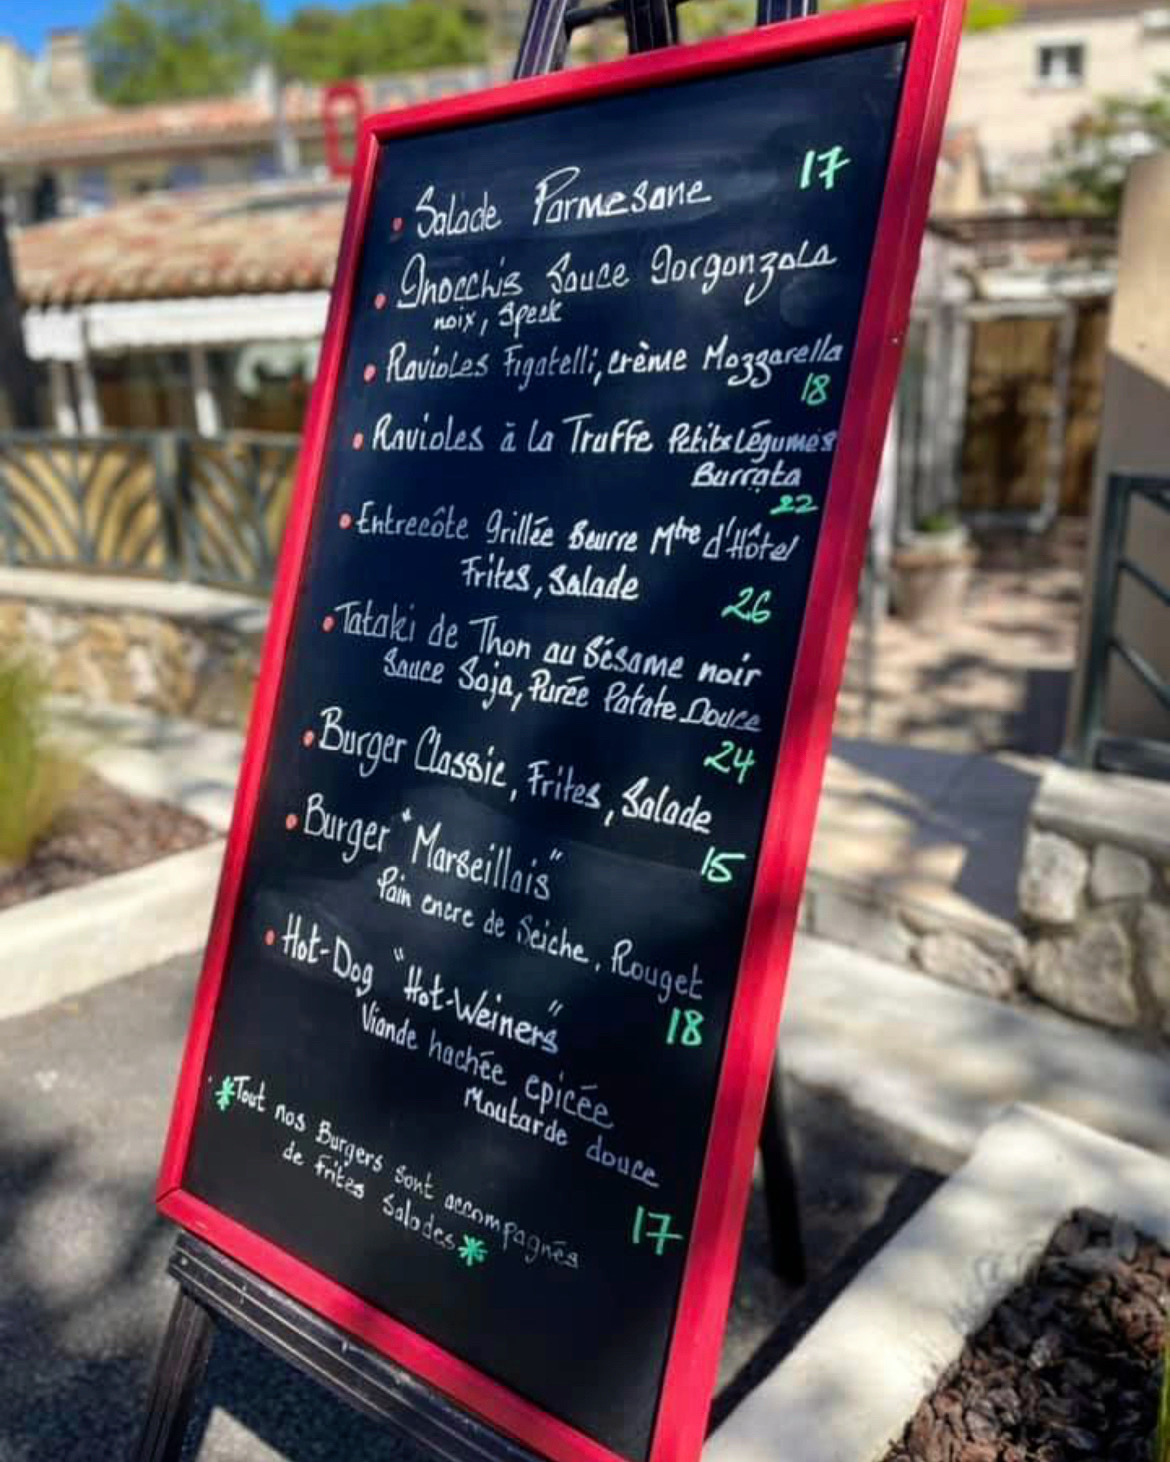 Salade Parmesane 17
Gnocchis Sauce Gorgonzola
noix, Speck
Ravioles Figatelli, crème Mozzarella
18
Ravioles à la Truffe Petits Légumes
Burrata
22
Entrecôte Grillée Beurre Mtre d'Hôtel
Frites, Salade
26
Tataki de Thon au Sésame noir
Sauce Soja, Purée Patate Douce
24
Burger Classic, Frites, Salade
15
Burger "Marseillais"
Pain encre de Seiche, Rouget
18
Hot-Dog "Hot-Weiners"
Viande hachée epicée
Moutarde douce
17
*Tout nos Burgers sont accompagnés
de Frites Salades*